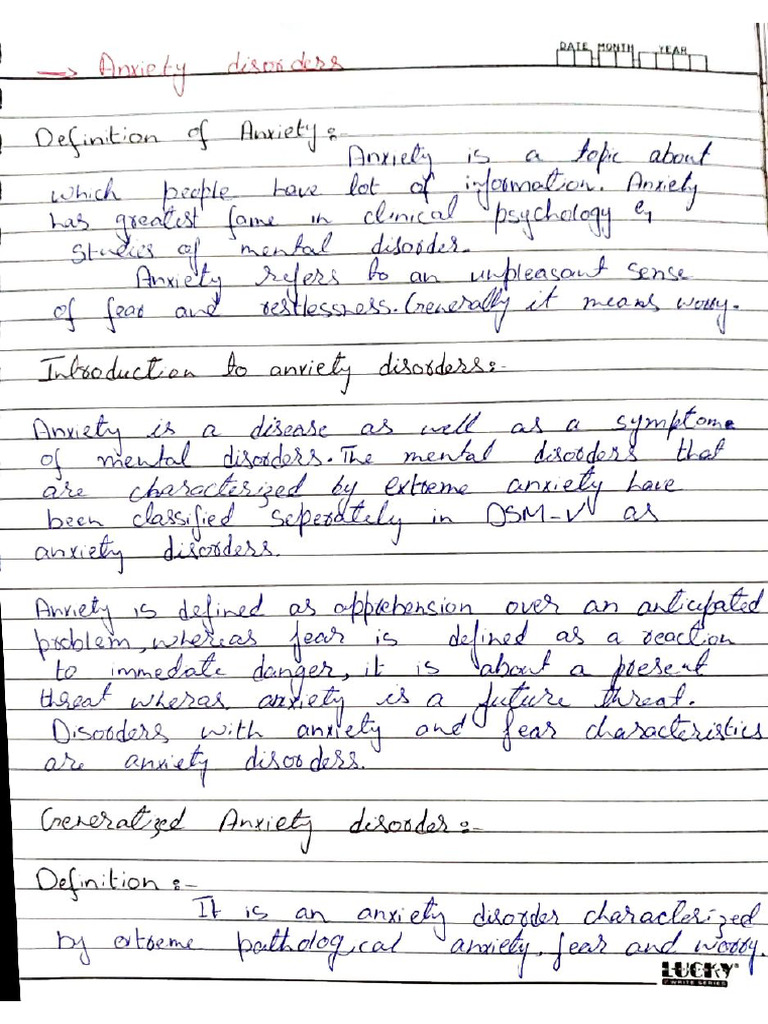 DATE MONTH YEAR
→ Anxiety disorders
Definition of Anxiety:-
Anxiety is a topic about
which people have lot of information. Anxiety
has greatest fame in clinical psychology &
studies of mental disorder.
Anxiety refers to an unpleasant sense
of fear and restlessness. Generally it means worry.
Introduction to anxiety disorders:-
Anxiety is a disease as well as a symptome
of mental disorders. The mental disorders that
are characterized by extreme anxiety have
been classified seperately in DSM-V as
anxiety disorders.
Anxiety is defined as apprehension over an anticipated
problem, whereas fear is defined as a reaction
to immedate danger, it is about a present
threat wheras anxiety is a future threat.
Disorders with anxiety and fear characteristics
are anxiety disorders.
Generalized Anxiety disorder:-
Definition:-
It is an anxiety disorder characterized
by extreme pathological anxiety, fear and worry.
LUCKY
WRITE SERIES